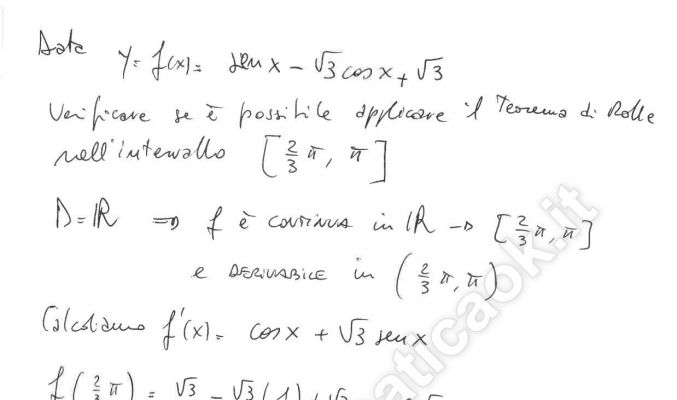 Data y = f(x) = sen x - √3 cos x + √3
Verificare se è possibile applicare il Teorema di Rolle
nell'intervallo [2/3 π, π]
D = ℝ ⇒ f è continua in ℝ → [2/3 π, π]
e DERIVABILE in (2/3 π, π)
Calcoliamo f'(x) = cos x + √3 sen x
f(2/3 π) = √3 - √3(
aticaok.it